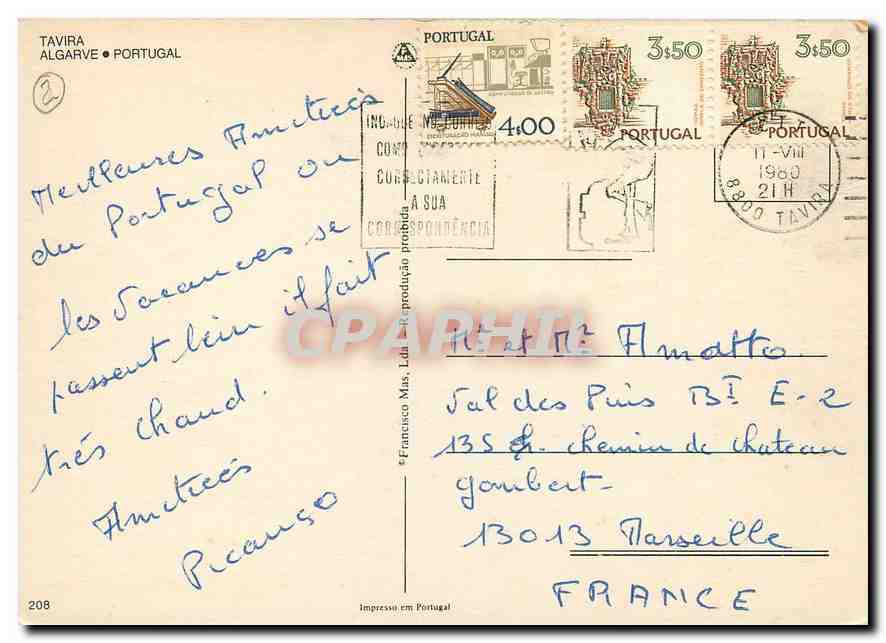 TAVIRA
ALGARVE ● PORTUGAL
2
Meilleures Amitiés
du Portugal ou
les vacances se
passent bien il fait
très chaud.
Amitiés
Picanço
208
© Francisco Mas, Lda - Reprodução proibida
Impresso em Portugal
PORTUGAL
4$00
3$50
PORTUGAL
3$50
PORTUGAL
INDIQUE NO CORREIO
COMO
CORRECTAMENTE
A SUA
CORRESPONDÊNCIA
11-VIII
1980
21H
8800 TAVIRA
CPAPHIL
Mr et Me Amatto
Val des Pins Bt E-2
135 ch. chemin de chateau
gombert
13013 Marseille
FRANCE